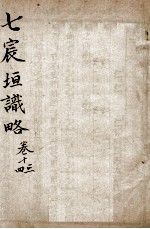 七宸垣識略
卷十三四